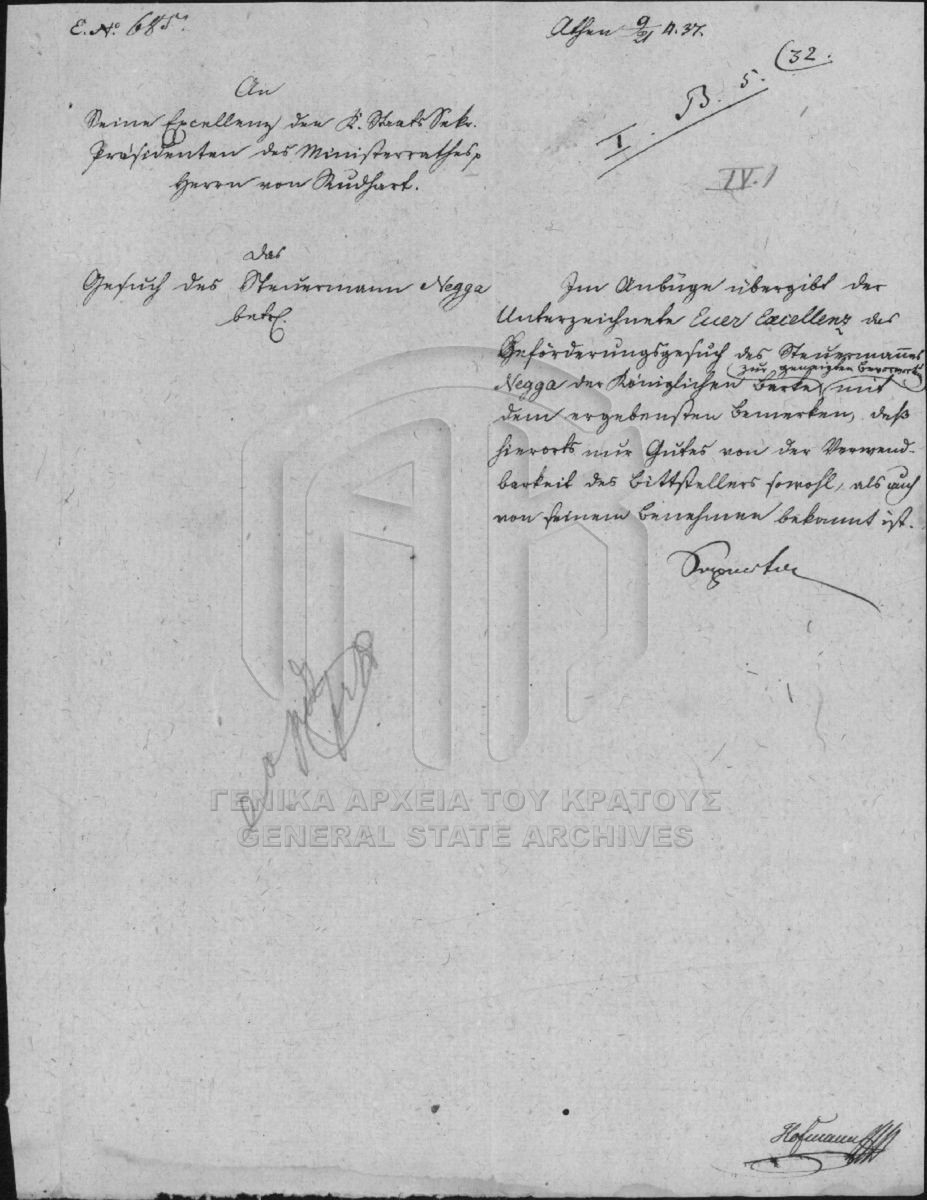 E. No. 685.
Athen 9/21 4. 37.
I. B. 5. (32.
IV. 1
An
Seine Excellenz den K. Staats Sekr.
Präsidenten des Ministerrathes
Herrn von Rudhart.
Das
Gesuch des Steuermann Negga
betr.
Im Anbuge übergibt der
Unterzeichnete Euer Excellenz das
Beförderungsgesuch des Steuermannes
Negga der Königlichen Barke, zur geneigten Bevorwortung mit
dem ergebensten Bemerken, daß
hierorts nur Gutes von der Verwend-
barkeit des Bittstellers sowohl, als auch
von seinem Benehmen bekannt ist.
Hofmann
ΓΕΝΙΚΑ ΑΡΧΕΙΑ ΤΟΥ ΚΡΑΤΟΥΣ
GENERAL STATE ARCHIVES